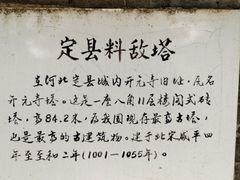 定县料敌塔
在河北定县城内开元寺旧址,原名
开元寺塔。这是一座八角11层楼阁式砖
塔,高84.2米,为我国现存最高古塔,
也是最高的古建筑物。建于北宋咸平四
年至至和二年(1001—1055年)。